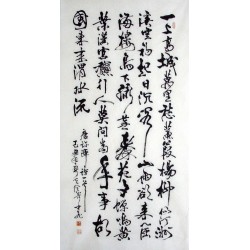 一上高城萬里愁蒹葭楊柳似汀洲
溪雲初起日沉閣山雨欲來風
滿樓鳥下綠蕪秦苑夕蟬鳴黃
葉漢宮秋行人莫問當年事故
國東來渭水流
唐許渾詩